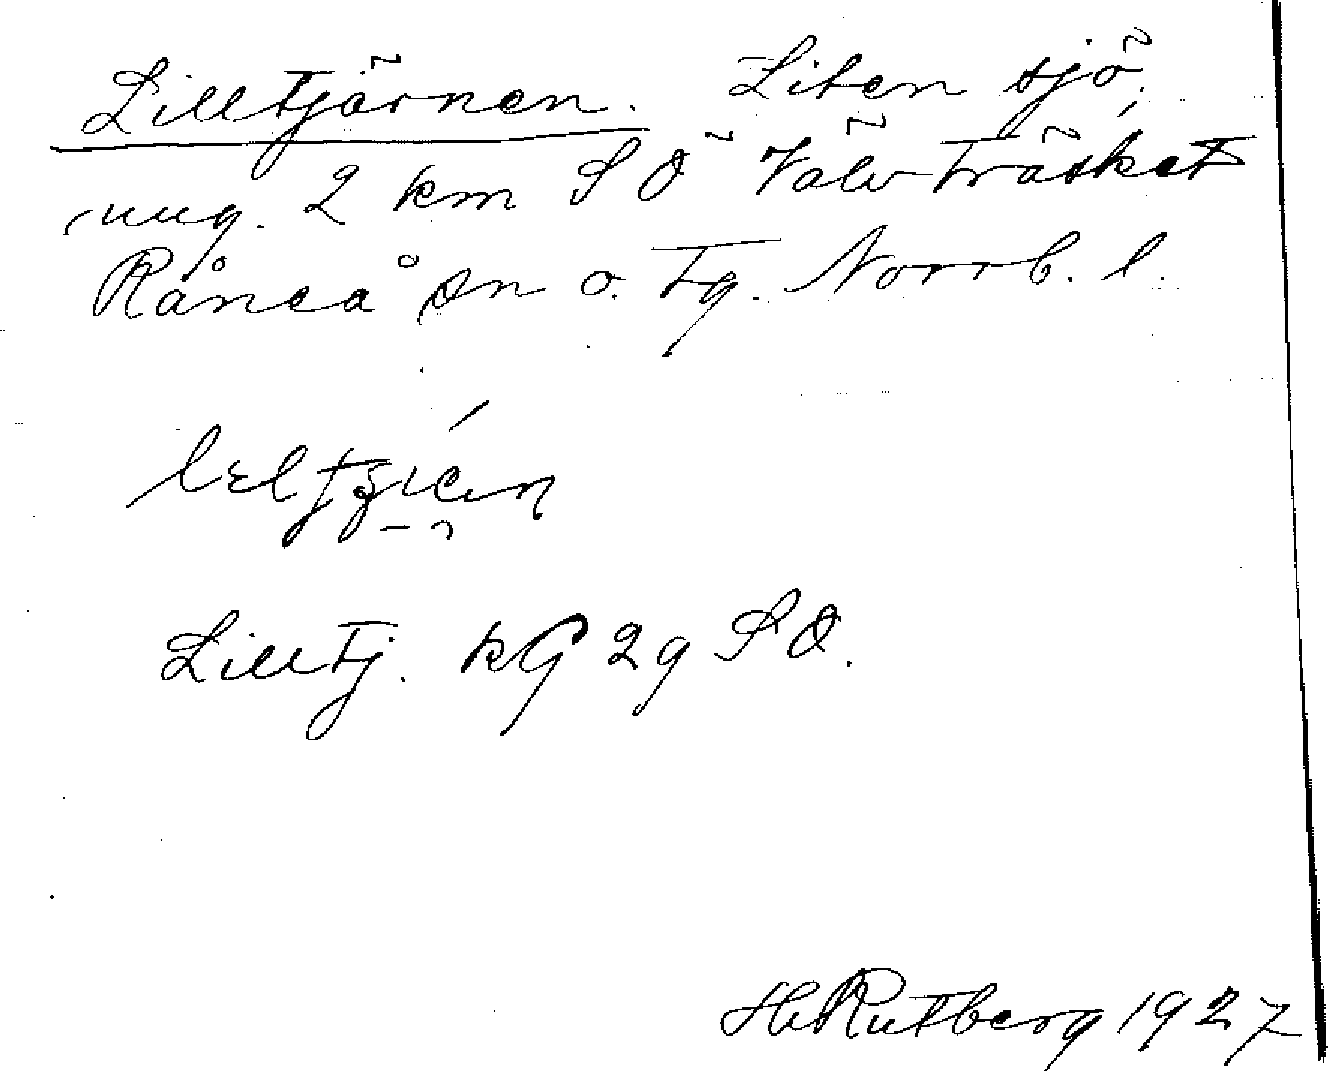 Lilltjärnen. Liten sjö,
ung. 2 km SÖ Välvträsket
Råneå sn o. tg. Norrb. l.
Lilltj. kG 29 SO.
H. Rutberg 1927